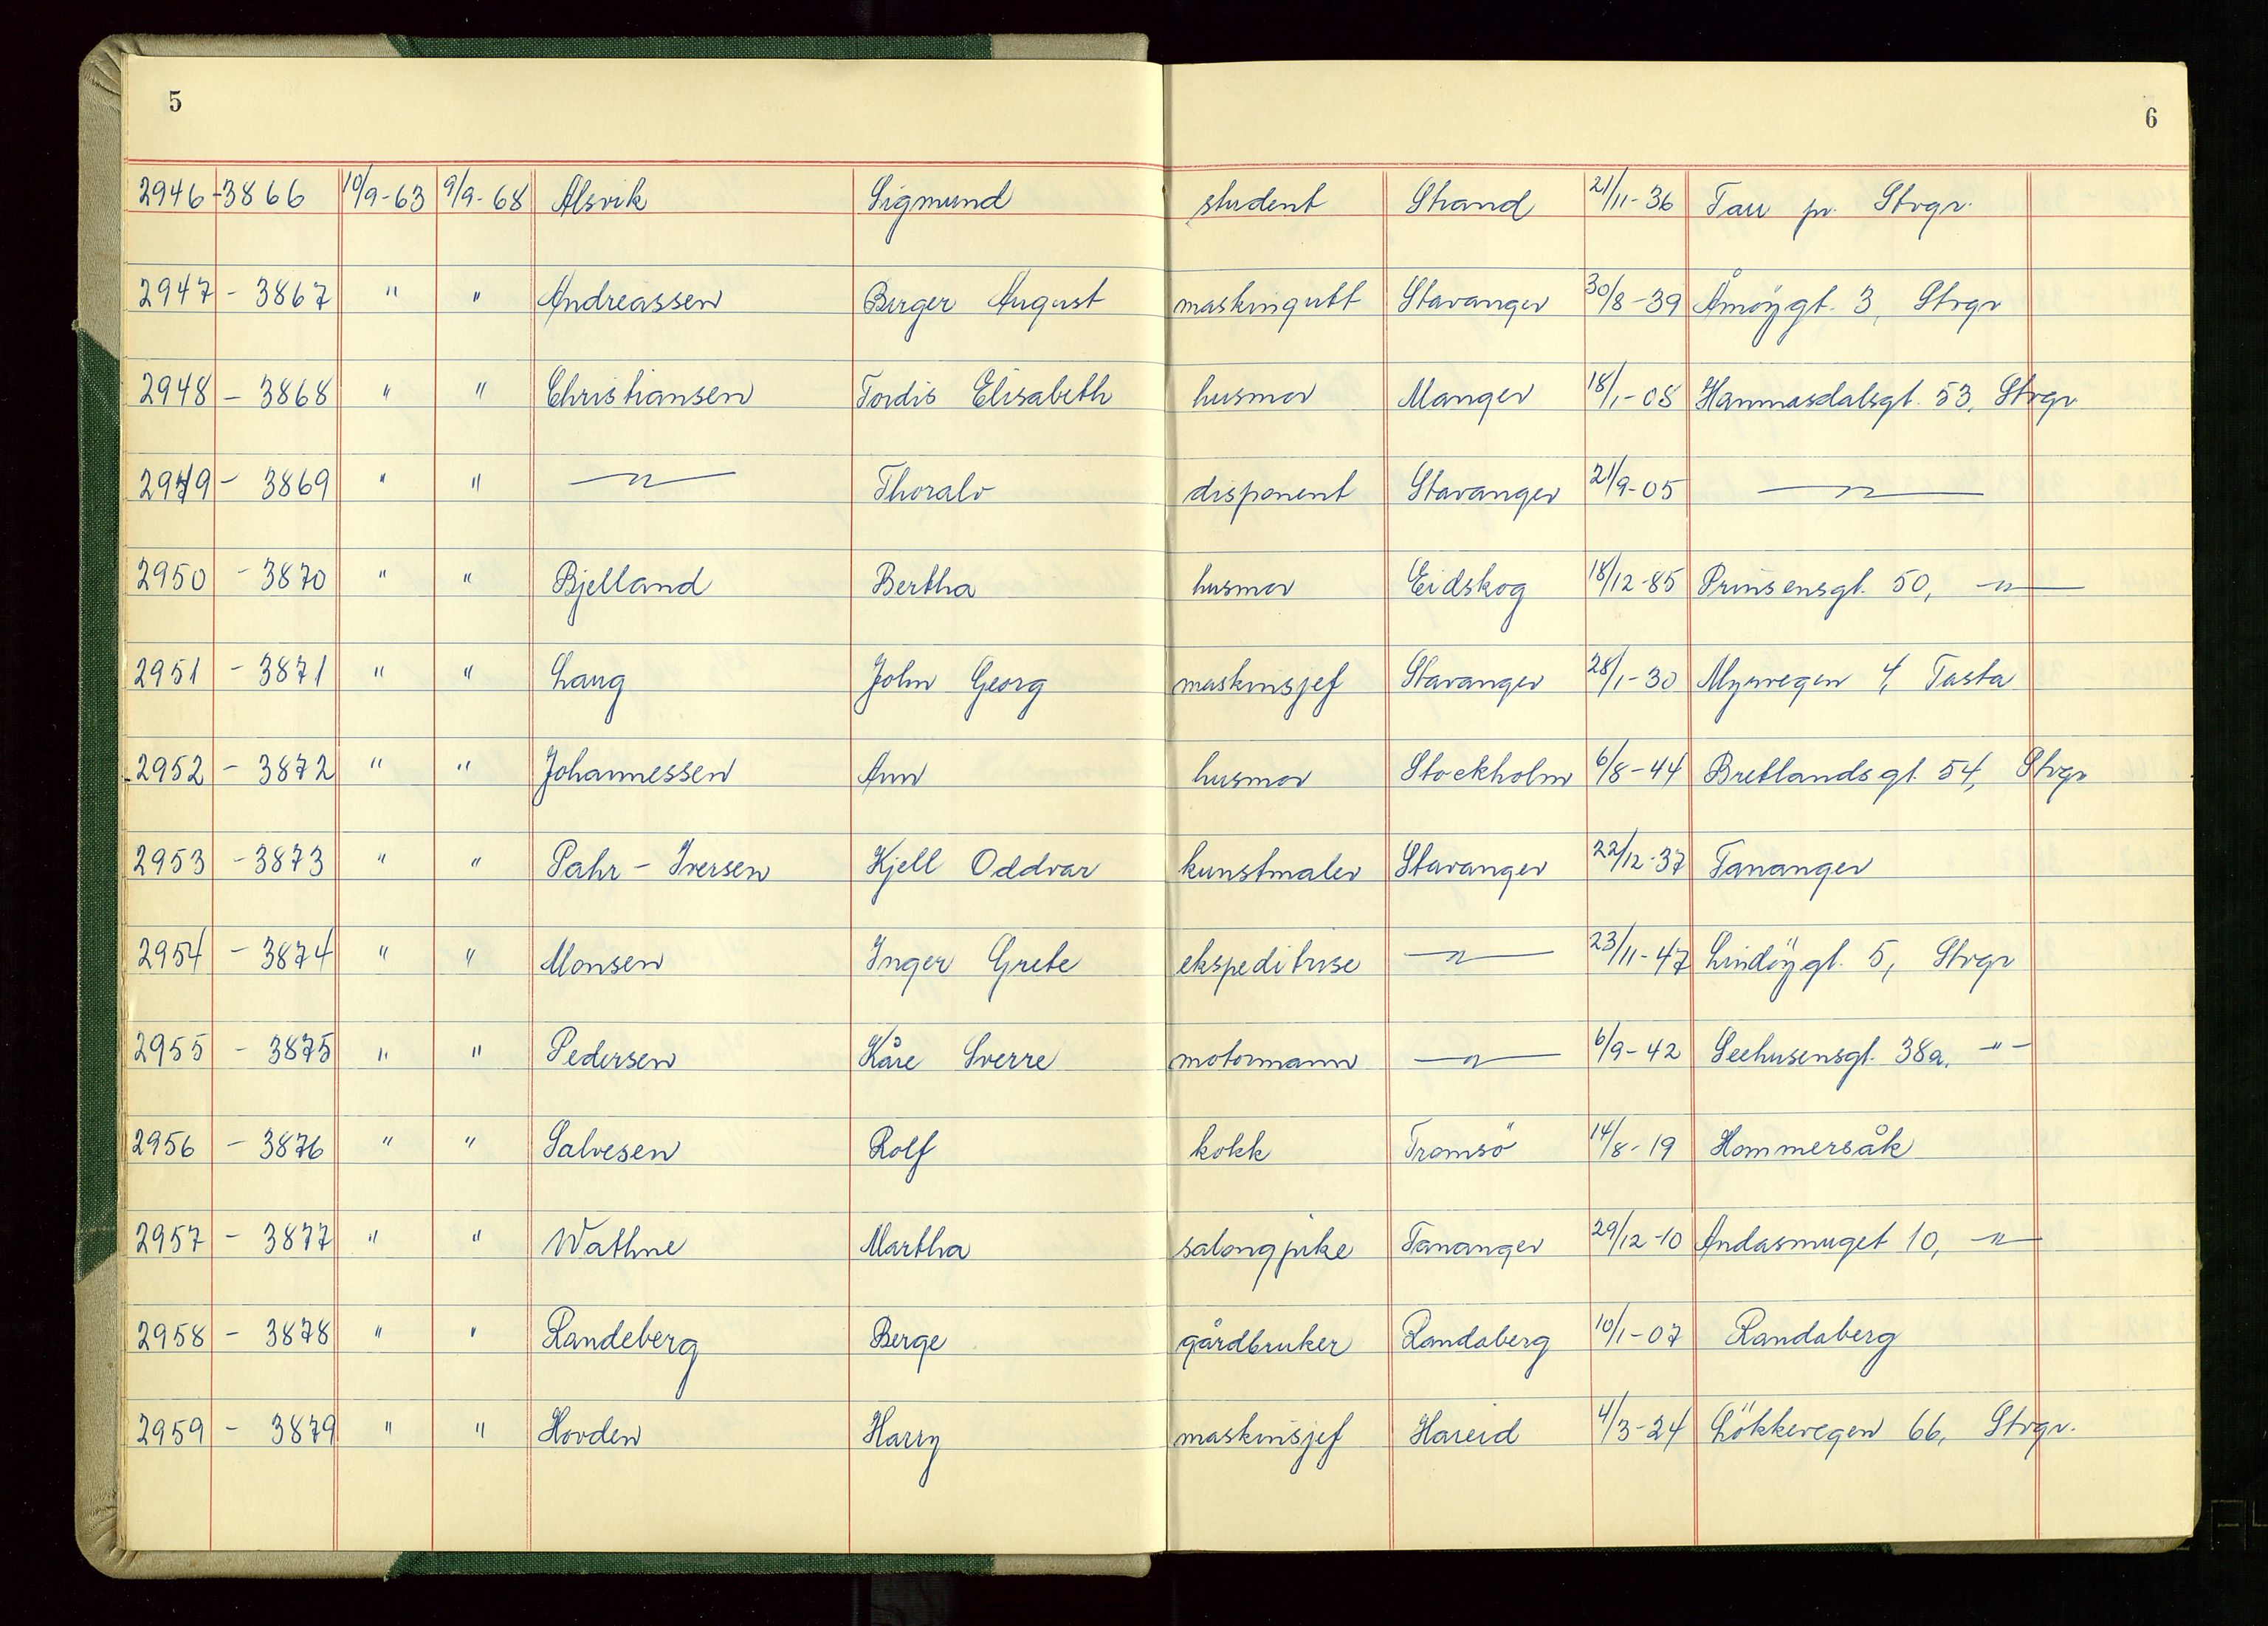 5
6
2946 - 3866 10/9-63 9/9-68 Alsvik Sigmund student Strand 21/11-36 Tau pr. Stvgr.
2947 - 3867 " " Andreassen Birger August maskingutt Stavanger 30/8-39 Åmöygt. 3, Stvgr
2948 - 3868 " " Christiansen Tordis Elisabeth husmor Manger 18/1-08 Hanmasdalsgt. 53, Stvgr
2949 - 3869 " " —"— Thoralv disponent Stavanger 21/9-05 —"—
2950 - 3870 " " Bjelland Bertha husmor Eidskog 18/12-85 Prinsensgt. 50, —"—
2951 - 3871 " " Laug John Georg maskinsjef Stavanger 28/1-30 Myrvegen 4, Tasta
2952 - 3872 " " Johannessen Ann husmor Stockholm 6/8-44 Bretlandsgt 54, Stvgr
2953 - 3873 " " Pahr - Iversen Kjell Oddvar kunstmaler Stavanger 22/12-37 Tananger
2954 - 3874 " " Monsen Inger Grete ekspeditrise —"— 23/11-47 Lindöygt. 5, Stvgr
2955 - 3875 " " Pedersen Kåre Sverre motormann —"— 6/9-42 Seehusensgt. 38a, —"—
2956 - 3876 " " Salvesen Rolf kokk Tromsö 14/8-19 Hommersåk
2957 - 3877 " " Wathne Martha salongpike Tananger 29/12-10 Andasmuget 10, —"—
2958 - 3878 " " Randeberg Berge gårdbruker Randaberg 10/1-07 Randaberg
2959 - 3879 " " Hovden Harry maskinsjef Hareid 4/3-24 Lökkevegen 66, Stvgr.